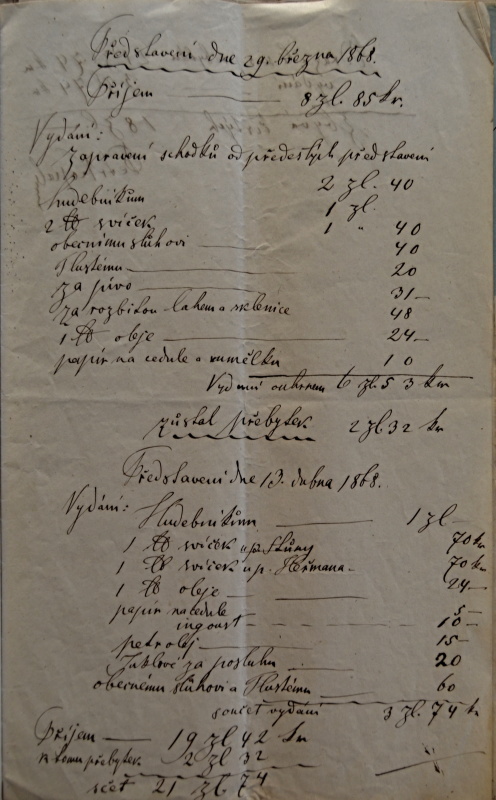 Představení dne 29. března 1868.
Příjem 8 zl. 85 kr.
Vydání:
Zapravení schodků od předešlých představení
2 zl. 40
Hudebníkům 1 zl.
2 ℔ svíček 1 " 40
obecnímu sluhovi 40
Hustému 20
za pivo 31
za rozbitou lahem a sklenice 48
1 ℔ oleje 24
papír na cedule a rumělku 10
Vydání ouhrnem 6 zl. 53 kr
zůstal přebytek 2 zl. 32 kr
Představení dne 13. dubna 1868.
Vydání: Hudebníkům 1 zl
1 ℔ svíček u p. 70 kr
1 ℔ svíček u p. Heřmana 70 kr
1 ℔ oleje 24
papír na cedule 5
ingoust 10
petrolej 15
za posluhu 20
obecnému sluhovi a Hustému 60
součet vydání 3 zl. 74 kr
Příjem 19 zl 42 kr
k tomu přebytek 2 zl 32
sčet 21 zl 74